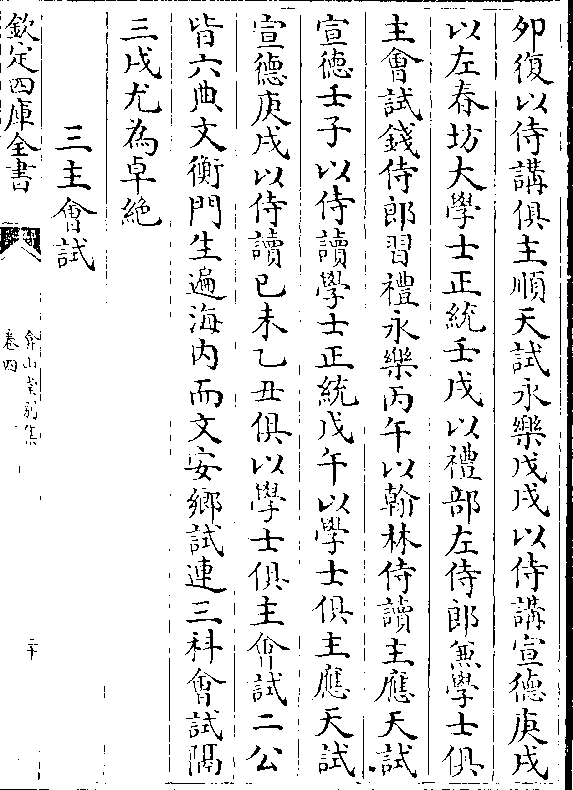 夘復以侍講俱主順天試永樂戊戌以侍講宣德庚戌
以左春坊大學士正統壬戌以禮部左侍郎兼學士俱
主會試錢侍郎習禮永樂丙午以翰林侍讀主應天試
宣德壬子以侍讀學士正統戊午以學士俱主應天試
宣德庚戌以侍讀已未乙丑俱以學士俱主會試二公
皆六典文衡門生遍海内而文安鄉試連三科會試隔
三戌尤為卓絶
三主會試
欽定四庫全書
弇山堂别集
卷四
二十